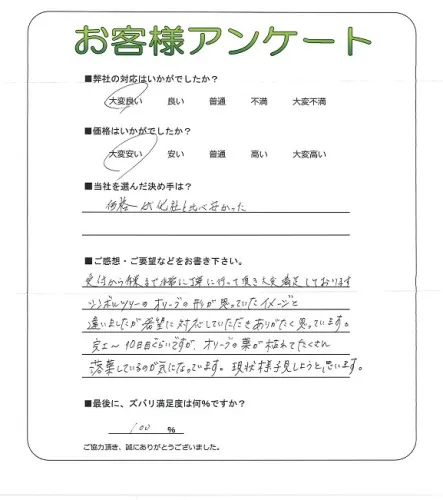 お客様アンケート
■弊社の対応はいかがでしたか？
大変良い 良い 普通 不満 大変不満
■価格はいかがでしたか？
大変安い 安い 普通 高い 大変高い
■当社を選んだ決め手は？
価格が他社と比べ安かった
■ご感想・ご要望などをお書き下さい。
受付から作業まで丁寧に行って頂き大変満足しております
シンボルツリーのオリーブの形が思っていたイメージと
違いましたが希望に対応していただきありがたく思っています。
完工〜10日目ぐらいですが、オリーブの葉が枯れてたくさん
落葉しているのが気になっています。現状様子見しようと思います。
■最後に、ズバリ満足度は何%ですか？
100 %
ご協力頂き、誠にありがとうございました。